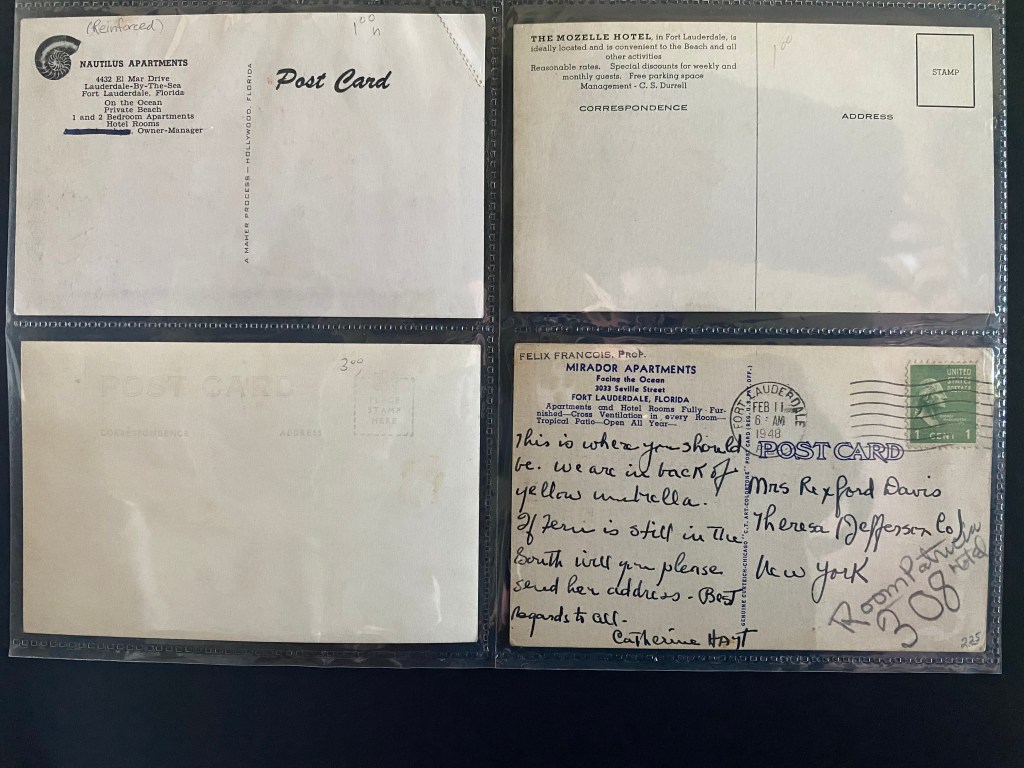 (Reinforced)
1⁰⁰
n
NAUTILUS APARTMENTS
4432 El Mar Drive
Lauderdale-By-The-Sea
Fort Lauderdale, Florida
On the Ocean
Private Beach
1 and 2 Bedroom Apartments
Hotel Rooms
, Owner-Manager
A MAHER PROCESS—HOLLYWOOD, FLORIDA
Post Card
THE MOZELLE HOTEL, in Fort Lauderdale, is
ideally located and is convenient to the Beach and all
other activities
Reasonable rates. Special discounts for weekly and
monthly guests. Free parking space
Management - C. S. Durrell
CORRESPONDENCE
1⁰⁰
STAMP
ADDRESS
3⁰⁰
POST CARD
CORRESPONDENCE
ADDRESS
STAMP
HERE
FELIX FRANCOIS, PROP.
MIRADOR APARTMENTS
Facing the Ocean
3033 Seville Street
FORT LAUDERDALE, FLORIDA
Apartments and Hotel Rooms Fully Fur-
nished—Cross Ventilation in every Room—
Tropical Patio—Open All Year—
This is where you should
be. We are in back of
yellow umbrella.
If Fern is still in the
South will you please
send her address - Best
regards to all.
Catherine HAYT
GENUINE CURTEICH-CHICAGO "C.T. ART-COLORTONE" POST CARD (REG. U.S. PAT. OFF.)
FORT LAUDERDALE
FEB 11
6 - AM
1948
UNITED
STATES
POSTAGE
1 CENT 1
POST CARD
Mrs Rexford Davis
Theresa (Jefferson Co)
New York
Room Patricia
308 Hotel
225